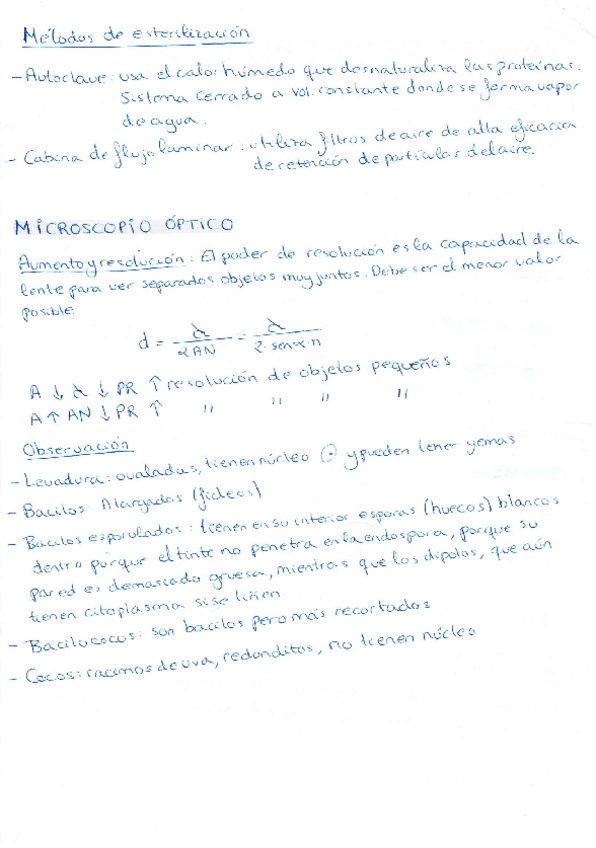 Métodos de esterilización
- Autoclave: usa el calor húmedo que desnaturaliza las proteínas.
Sistema cerrado a vol. constante donde se forma vapor
de agua.
- Cabina de flujo laminar: utiliza filtros de aire de alta eficacia
de retención de partículas del aire.
MICROSCOPIO ÓPTICO
Aumento y resolución: El poder de resolución es la capacidad de la
lente para ver separados objetos muy juntos. Debe ser el menor valor
posible.
d = λ / 2AN = λ / 2·senα·n
A ↓ λ ↓ PR ↑ resolución de objetos pequeños
A ↑ AN ↓ PR ↑ " " " "
Observación
- Levadura: ovaladas, tienen núcleo ⊙ y pueden tener yemas
- Bacilos: Alargados (fideos)
- Bacilos esporulados: tienen en su interior esporas (huecos) blancos
dentro porque el tinte no penetra en la endospora, porque su
pared es demasiado gruesa, mientras que los dipolos, que aún
tienen citoplasma si se tiñen
- Bacilococos: son bacilos pero más recortados
- Cocos: racimos de uva, redonditos, no tienen núcleo